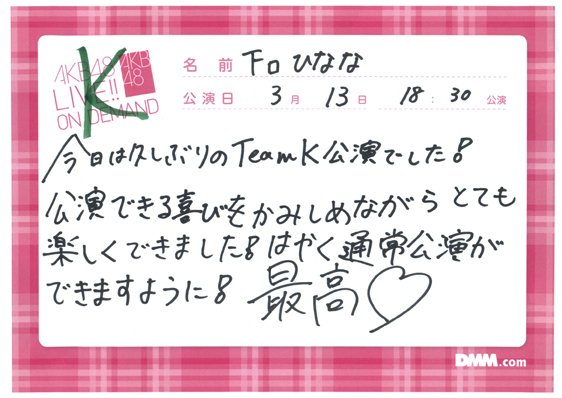 AKB48
LIVE!!
ON DEMAND
AKB
48
K
名前 下口ひなな
公演日 3月 13日 18:30 公演
今日は久しぶりのTeamK公演でした!
公演できる喜びをかみしめながらとても
楽しくできました!はやく通常公演が
できますように! 最高♡
DMM.com